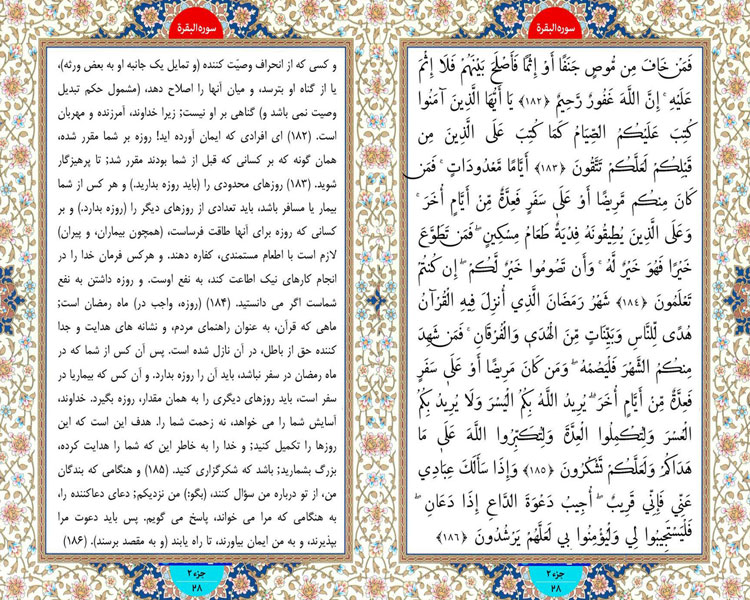 سوره البقرة
فَمَنْ خَافَ مِن مُّوصٍ جَنَفًا أَوْ إِثْمًا فَأَصْلَحَ بَيْنَهُمْ فَلَا إِثْمَ
عَلَيْهِ ۚ إِنَّ اللَّهَ غَفُورٌ رَّحِيمٌ ﴿۱۸۲﴾ يَا أَيُّهَا الَّذِينَ آمَنُوا
كُتِبَ عَلَيْكُمُ الصِّيَامُ كَمَا كُتِبَ عَلَى الَّذِينَ مِن
قَبْلِكُمْ لَعَلَّكُمْ تَتَّقُونَ ﴿۱۸۳﴾ أَيَّامًا مَّعْدُودَاتٍ ۚ فَمَن
كَانَ مِنكُم مَّرِيضًا أَوْ عَلَى سَفَرٍ فَعِدَّةٌ مِّنْ أَيَّامٍ أُخَرَ ۚ
وَعَلَى الَّذِينَ يُطِيقُونَهُ فِدْيَةٌ طَعَامُ مِسْكِينٍ ۖ فَمَن تَطَوَّعَ
خَيْرًا فَهُوَ خَيْرٌ لَّهُ ۚ وَأَن تَصُومُوا خَيْرٌ لَّكُمْ ۖ إِن كُنتُمْ
تَعْلَمُونَ ﴿۱۸٤﴾ شَهْرُ رَمَضَانَ الَّذِي أُنزِلَ فِيهِ الْقُرْآنُ
هُدًى لِّلنَّاسِ وَبَيِّنَاتٍ مِّنَ الْهُدَى وَالْفُرْقَانِ ۚ فَمَن شَهِدَ
مِنكُمُ الشَّهْرَ فَلْيَصُمْهُ ۖ وَمَن كَانَ مَرِيضًا أَوْ عَلَى سَفَرٍ
فَعِدَّةٌ مِّنْ أَيَّامٍ أُخَرَ ۗ يُرِيدُ اللَّهُ بِكُمُ الْيُسْرَ وَلَا يُرِيدُ بِكُمُ
الْعُسْرَ وَلِتُكْمِلُوا الْعِدَّةَ وَلِتُكَبِّرُوا اللَّهَ عَلَى مَا
هَدَاكُمْ وَلَعَلَّكُمْ تَشْكُرُونَ ﴿۱۸۵﴾ وَإِذَا سَأَلَكَ عِبَادِي
عَنِّي فَإِنِّي قَرِيبٌ ۖ أُجِيبُ دَعْوَةَ الدَّاعِ إِذَا دَعَانِ ۖ
فَلْيَسْتَجِيبُوا لِي وَلْيُؤْمِنُوا بِي لَعَلَّهُمْ يَرْشُدُونَ ﴿۱۸٦﴾
جزء ۲
۲۸
سوره البقرة
و کسی که از انحراف وصیّت کننده (و تمایل یک جانبه او به بعض ورثه)،
یا از گناه او بترسد، و میان آنها را اصلاح دهد، (مشمول حکم تبدیل
وصیت نمی باشد و) گناهی بر او نیست؛ زیرا خداوند، آمرزنده و مهربان
است. (۱۸۲) ای افرادی که ایمان آورده اید! روزه بر شما مقرر شده،
همان گونه که بر کسانی که قبل از شما بودند مقرر شد؛ تا پرهیزگار
شوید. (۱۸۳) روزهای محدودی را (باید روزه بدارید.) و هر کس از شما
بیمار یا مسافر باشد، باید تعدادی از روزهای دیگر را (روزه بدارد.) و بر
کسانی که روزه برای آنها طاقت فرساست، (همچون بیماران، و پیران)
لازم است با اطعام مستمندی، کفاره دهند. و هرکس فرمان خدا را در
انجام کارهای نیک اطاعت کند، به نفع اوست. و روزه داشتن به نفع
شماست اگر می دانستید. (۱۸۴) (روزه، واجب در) ماه رمضان است;
ماهی که قرآن، به عنوان راهنمای مردم، و نشانه های هدایت و جدا
کننده حق از باطل، در آن نازل شده است. پس آن کس از شما که در
ماه رمضان در سفر نباشد، باید آن را روزه بدارد. و آن کس که بیماریا در
سفر است، باید روزهای دیگری را به همان مقدار، روزه بگیرد. خداوند،
آسایش شما را می خواهد، نه زحمت شما را. هدف این است که این
روزها را تکمیل کنید; و خدا را به خاطر این که شما را هدایت کرده،
بزرگ بشمارید; باشد که شکرگزاری کنید. (۱۸۵) و هنگامی که بندگان
من، از تو درباره من سؤال کنند، (بگو:) من نزدیکم; دعای دعاکننده را،
به هنگامی که مرا می خواند، پاسخ می گویم. پس باید دعوت مرا
بپذیرند، و به من ایمان بیاورند، تا راه یابند (و به مقصد برسند). (۱۸۶)
جزء ۲
۲۸